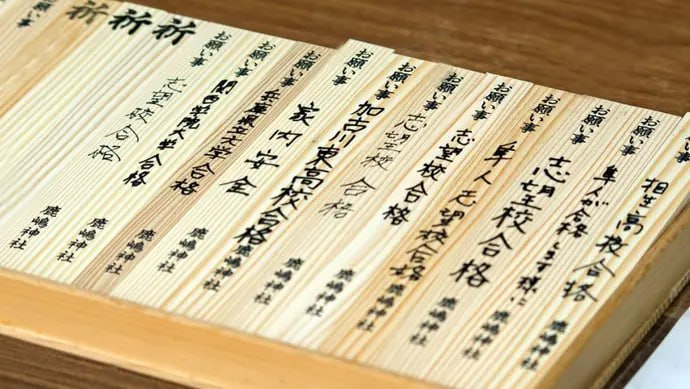 お願い事
相生高校合格
鹿嶋神社
お願い事
隼人が合格します様に
鹿嶋神社
お願い事
志望校合格
鹿嶋神社
お願い事
隼人志望校合格
鹿嶋神社
お願い事
志望校合格
鹿嶋神社
お願い事
志望校合格
鹿嶋神社
お願い事
加古川東高校合格
鹿嶋神社
お願い事
家内安全
鹿嶋神社
お願い事
兵庫県立大学合格
鹿嶋神社
お願い事
関西学院大学合格
鹿嶋神社
祈
志望校合格
鹿嶋神社
祈
祈
お願い事